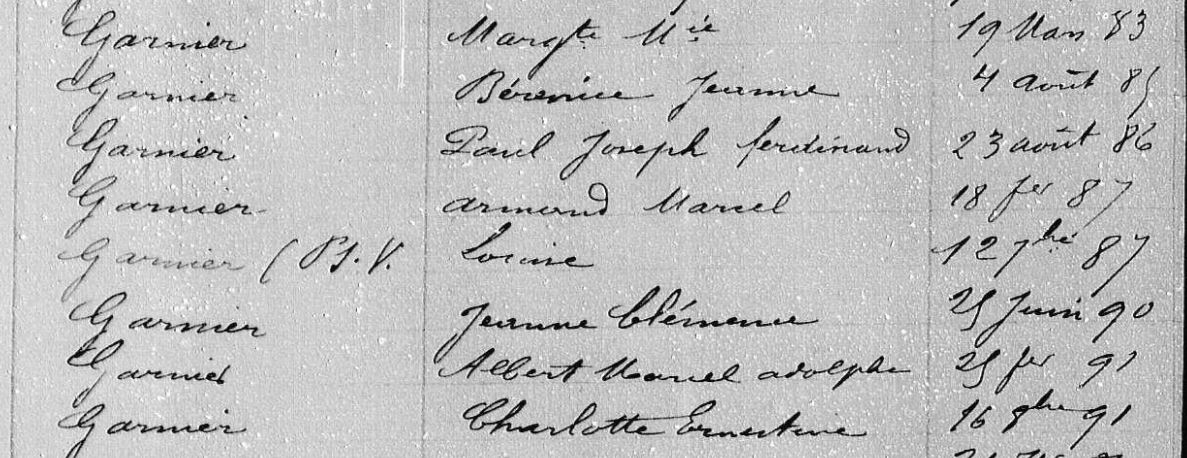 Garnier Margte Mie 19 Mars 83
Garnier Bérénice Jeanne 4 août 85
Garnier Paul Joseph ferdinand 23 août 86
Garnier armand Marcel 18 fer 87
Garnier ( 12 7bre 87
Garnier Jeanne Clémence 25 Juin 90
Garnier Albert Marcel adolphe 25 fer 91
Garnier Charlotte Ernestine 16 8bre 91